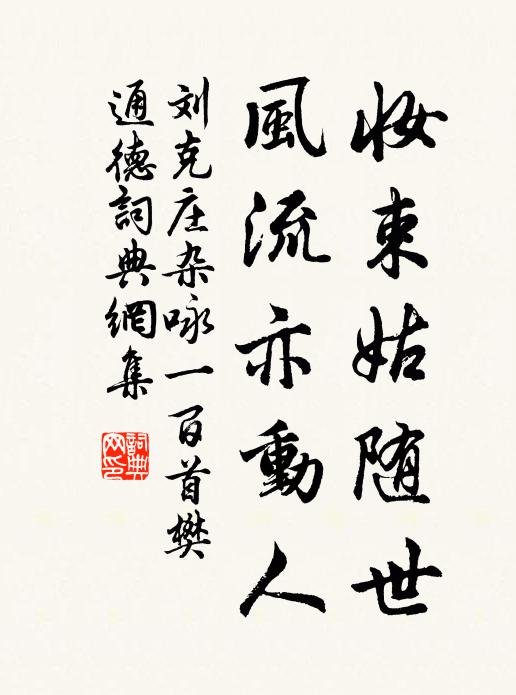 妝束姑随世
風流亦動人
刘克庄杂咏一百首樊
通德詞典網集
詞典网印